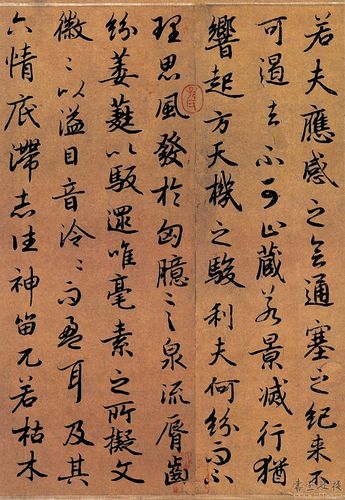 若夫應感之會通塞之紀來不
可遏去不可止藏若景滅行猶
響起方天機之駿利夫何紛而不
理思風發於匈臆言泉流脣齒
紛萎蕤以馺遝唯毫素之所擬文
徽〻以溢目音泠〻而盈耳及其
六情底滯志往神留兀若枯木